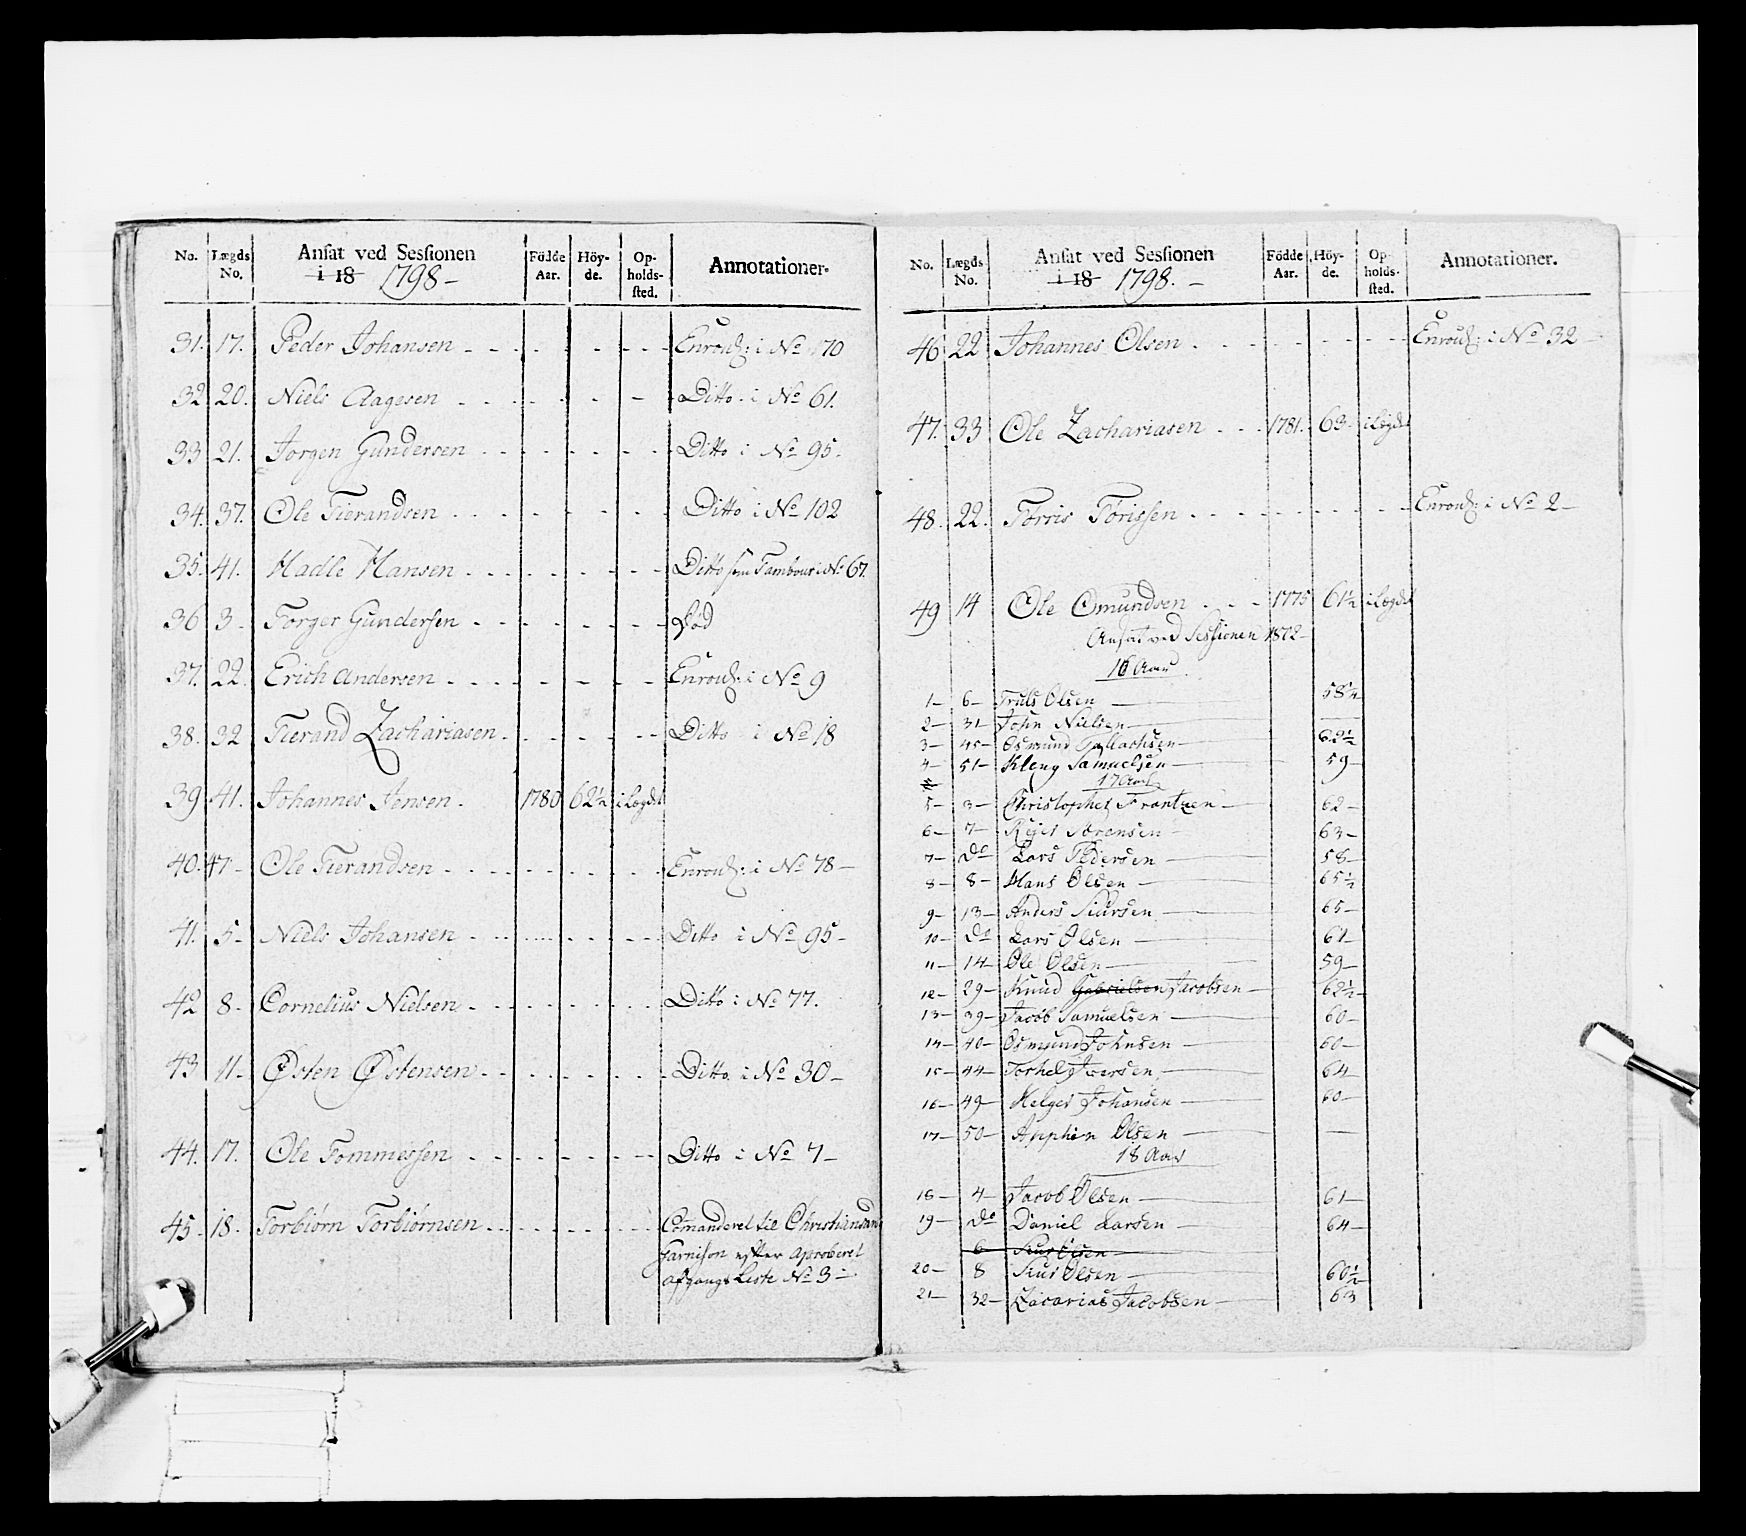 No. Lægds No. Ansat ved Sessionen i 18 1798 – Födde Aar. Höyde. Opholdssted. Annotationer.
31. 17. Peder Johansen - - - Enroul: i No 170
32 20. Niels Aagesen - - - Ditto i No 61.
33 21. Jorgen Gundersen - - - Ditto i No 95.
34. 37. Ole Tierandsen - - - Ditto i No 102
35. 41. Hadle Hansen - - - Ditto som Tambour i No 67.
36 3 Torger Gundersen - - - Död
37. 22. Erich Andersen - - - Enroul: i No 9
38. 32 Tierand Zachariasen - - - Ditto i No 18
39 41. Johannes Jensen. 1780 62½ i Lægdet
40. 47 – Ole Tierandsen - - - Enroul: i No 78 –
41. 5 – Niels Johansen - - - Ditto i No 95 –
42 8 – Cornelius Nielsen - - - Ditto i No 77.
43 11 – Østen Østensen - - - Ditto i No 30 –
44. 17. Ole Tommessen - - - Ditto i No 7 –
45 – 18. Torbiörn Torbiörnsen - - - Comanderet til Christiansand
Garnison efter Aproberet
Afgangs Liste No 3 –
No. Lægds No. Ansat ved Sessionen i 18 1798. – Födde Aar. Höyde. Opholdssted. Annotationer.
46 22 Johannes Olsen - - - Enroul: i No 32 –
47. 33 Ole Zachariasen - - - 1781. 63 – i Lægdet
48. 22. Torris Torissen - - - Enroul: i No 2 –
49 14 Ole Omundsen - - - 1775 61½ i Lægdet
Ansat ved Sessionen 1802 –
16 Aar
1 – 6 – Truls Olsen – 58¼
2 – 31 John Nielsen –
3 – 45 – Osmund Tollachsen – 62½
4 – 51 – Kleng Samuelsen – 59 –
17 Aar
5 – 3 – Christopher Frantzen – 62 –
6 – 7 – Rejer Sörensen – 63 –
7 – Do Lars Pedersen – 58 –
8 – 8 – Hans Olsen – 65½
9 – 13 – Anders Siursen – 65 –
10 – Do Lars Olsen – 61 –
11 – 14 – Ole Olsen – 59 –
12 – 29 – Knud Gabrielsen Jacobsen – 62½ –
13 – 39 – Jacob Samuelsen – 60 –
14 – 40 – Osmund Johnsen – 60 –
15 – 44 – Torkel Iversen – 64
16 – 49 – Helger Johansen – 60 –
17 – 50 – Anphin Olsen –
18 Aar
18 – 4 – Jacob Olsen – 61 –
19 – Do Daniel Larsen – 64 –
6 Siur Olsen –
20 – 8 Siur Olsen – 60½
21 – 32 – Zacarias Jacobsen – 63